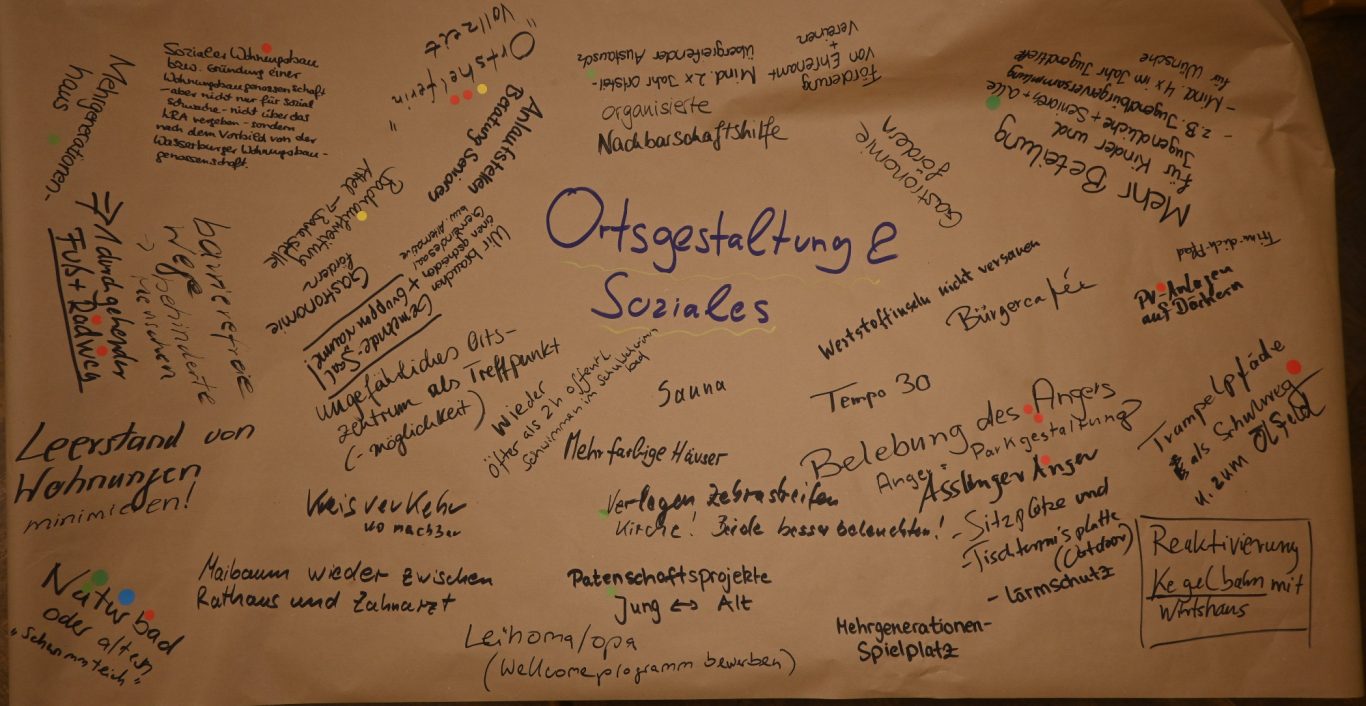 Ortsgestaltung &
Soziales
Sozialer Wohnungsbau
bzw. Gründung einer
Wohnungsbaugenossenschaft
- aber nicht nur für sozial
schwache - nicht über das
LRA vergeben - sondern
nach dem Vorbild von der
Wasserburger Wohnungsbau-
genossenschaft.
Mehrgenerationen-
haus
"Ortshelferin"
Vollzeit
Anlaufstellen
Beratung Senioren
organisierte
Nachbarschaftshilfe
Mind. 2x Jahr ortsteil-
übergreifender Austausch
Förderung
von Ehrenamt
+
Vereinen
Gastronomie
fördern
Mehr Beteilung
für Kinder und
Jugendliche + Senioren + alle
- z.B. Jugendbürgerversammlung
- Mind. 4x im Jahr Jugendtreff
für Wünsche
Trau-dich-Pfad
PV-Anlagen
auf Dächern
Bürgercafée
Wertstoffinseln nicht versauen
Tempo 30
Sauna
=> 1 durchgehender
Fuß + Radweg
barrierefreie
Wege
> behinderte
Menschen
Attel -> Badestelle
Gastronomie
fördern
Wir brauchen
einen gscheiden
Gemeindesaal
bzw. Alternative
Gemeinde-Saal
+ Gruppenräume!
ungefährliches Orts-
zentrum als Treffpunkt
(-möglichkeit)
Wieder
öfter als 2h öffentl.
schwimmen im Schulschwimm
bad
Mehrfarbige Häuser
Belebung des Angers
Anger: Parkgestaltung?
Asslinger Anger
- Sitzplätze und
- Tischtennisplatte
(Outdoor)
- Lärmschutz
Trampelpfade
als Schulweg
u. zum Ölfeld
Leerstand von
Wohnungen
minimieren!
Kreisverkehr
wo machbar
Verlagen Zebrastreifen
Kirche! Beide besser beleuchten!
Naturbad
oder alten
"Schwimmteich"
Maibaum wieder zwischen
Rathaus und Zahnarzt
Patenschaftsprojekte
Jung <-> Alt
Leihoma/opa
(Wellcomeprogramm bewerben)
Mehrgenerationen-
Spielplatz
Reaktivierung
Kegelbahn mit
Wirtshaus